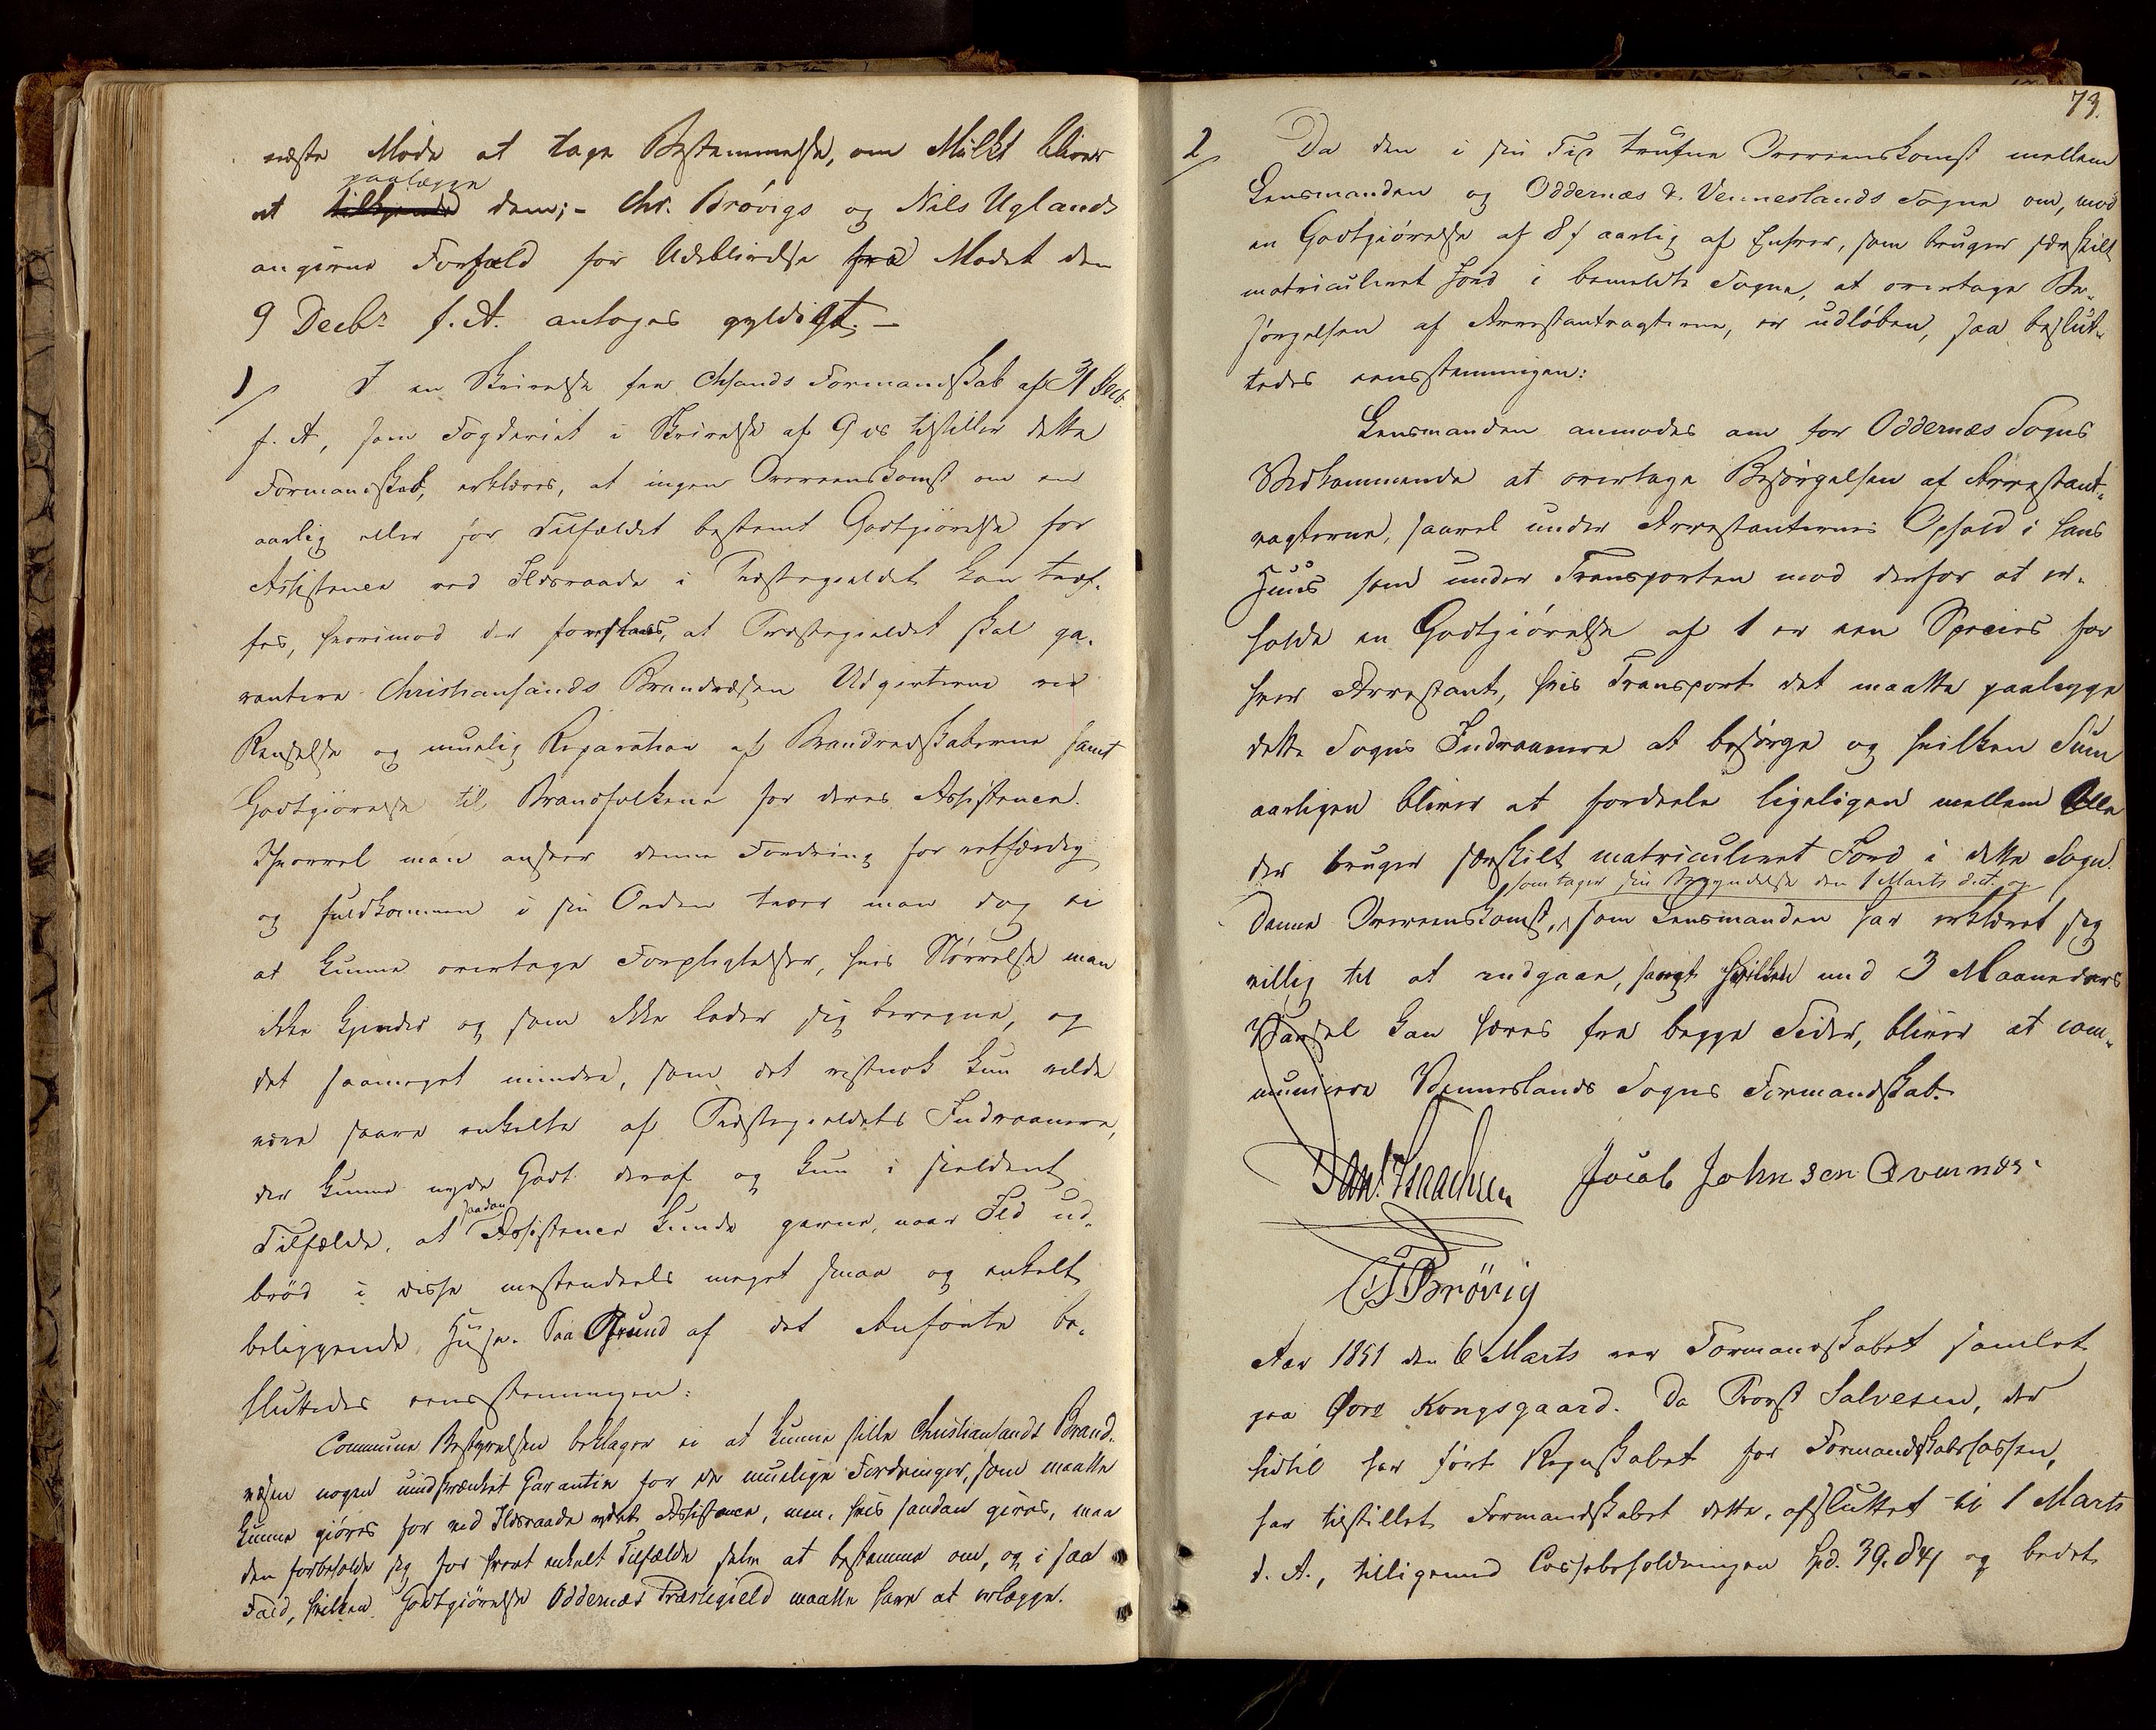 næste Møde at tage Bestemmelse, om Mulkt bliver
paalægge
at tilkjende dem; - Chr. Brøvigs og Nils Uglands
angivne Forfald for Udeblivelse fra Mødet den
9 Decbr f. A. antoges gyldigt. -
1/ I en Skrivelse fra Chsands Formandskab af 31 Decb.
f. A, som Fogderiet i Skrivelse af 9 ds tilstiller dette
Formandskab, erklæres, at ingen Overeenskomst om en
aarlig eller for Tilfældet bestemt Godtgjørelse for
Assistence ved Ildsvaade i Præstegieldet kan træf-
fes, hvorimod der forestaaes, at Præstegieldet skal ga-
rantere Christiansands Brandvæsen Udgifterne ved
Renselse og muelig Reparation af Brandredskaberne samt
Godtgjörelse til Brandfolkene for deres Assistence.
Hvorvel man anseer denne Fordring for retfærdig
og fuldkommen i sin Orden troer man dog ei
at kunne overtage Forpligtelser, hvis Størrelse man
ikke kjender og som ikke lader sig beregne, og
det saameget mindre, som det vistnok kun vilde
være saare enkelte af Præstegieldets Indvaanere,
der kunne nyde Godt deraf og kun i sieldent
saadan
Tilfælde, at Assistence kunde gavne, naar Ild ud-
brød i disse mestendeels meget smaa og enkelt
beliggende Huse. Paa Grund af det Anførte be-
sluttedes eensstemmigen:
Commune Bestyrelsen beklager ei at kunne stille Christiansands Brand-
væsen nogen uindskrænket Garantie for de muelige Fordringer, som maatte
kunne giöres for ved Ildsvaade ydet Assistence, men, hvis saadan gives, maa
den forbeholde sig for hvert enkelt Tilfælde selv at bestemme om, og i saa
Fald, hvilken Godtgjörelse Oddernæs Præstegield maatte have at erlægge.
73.
2/ Da den i sin Tid trufne Overeenskomst mellem
Lensmanden og Oddernæs & Venneslands Sogne om, mod
en Godtgiörelse af 8 s aarlig af Enhver, som bruger særskilt
matriculeret Jord i bemeldte Sogne, at overtage Be-
sörgelsen af Arrestantvagterne, er udlöben, saa beslut-
tedes eensstemmigen:
Lensmanden anmodes om for Oddernæs Sogns
Vedkommende at overtage Besörgelsen af Arrestant-
vagterne, saavel under Arrestanternes Ophold i hans
Huus som under Transporten mod derfor at er-
holde en Godtgiörelse af 1 er een Species for
hver Arrestant, hvis Transport det maatte paalegge
dette Sogns Indvaanere at besörge og hvilken Sum
aarligen bliver at fordeele ligeligen mellem Alle
der bruger særskilt matriculeret Jord i dette Sogn.
som tager sin Begyndelse den 1 Marts d.A. og
Denne Overeenskomst, som Lensmanden har erklæret sig
villig til at indgaae, samt hvilken med 3 Maaneders
Varsel kan hæves fra begge Sider, bliver at com-
municere Venneslands Sogns Formandskab.
Danl. Isaachsen Jacob Johnsen Qvernæs.
C Brövig
Aar 1851 den 6 Marts var Formandskabet samlet
paa Øvre Kongsgaard. Da Provst Salvesen, der
hidtil har fört Regnskabet for Formandskabscassen,
har tilstillet Formandskabet dette, afsluttet til 1 Marts
d. A., tilligemed Cassebeholdningen Spd. 39. 84 s og bedet